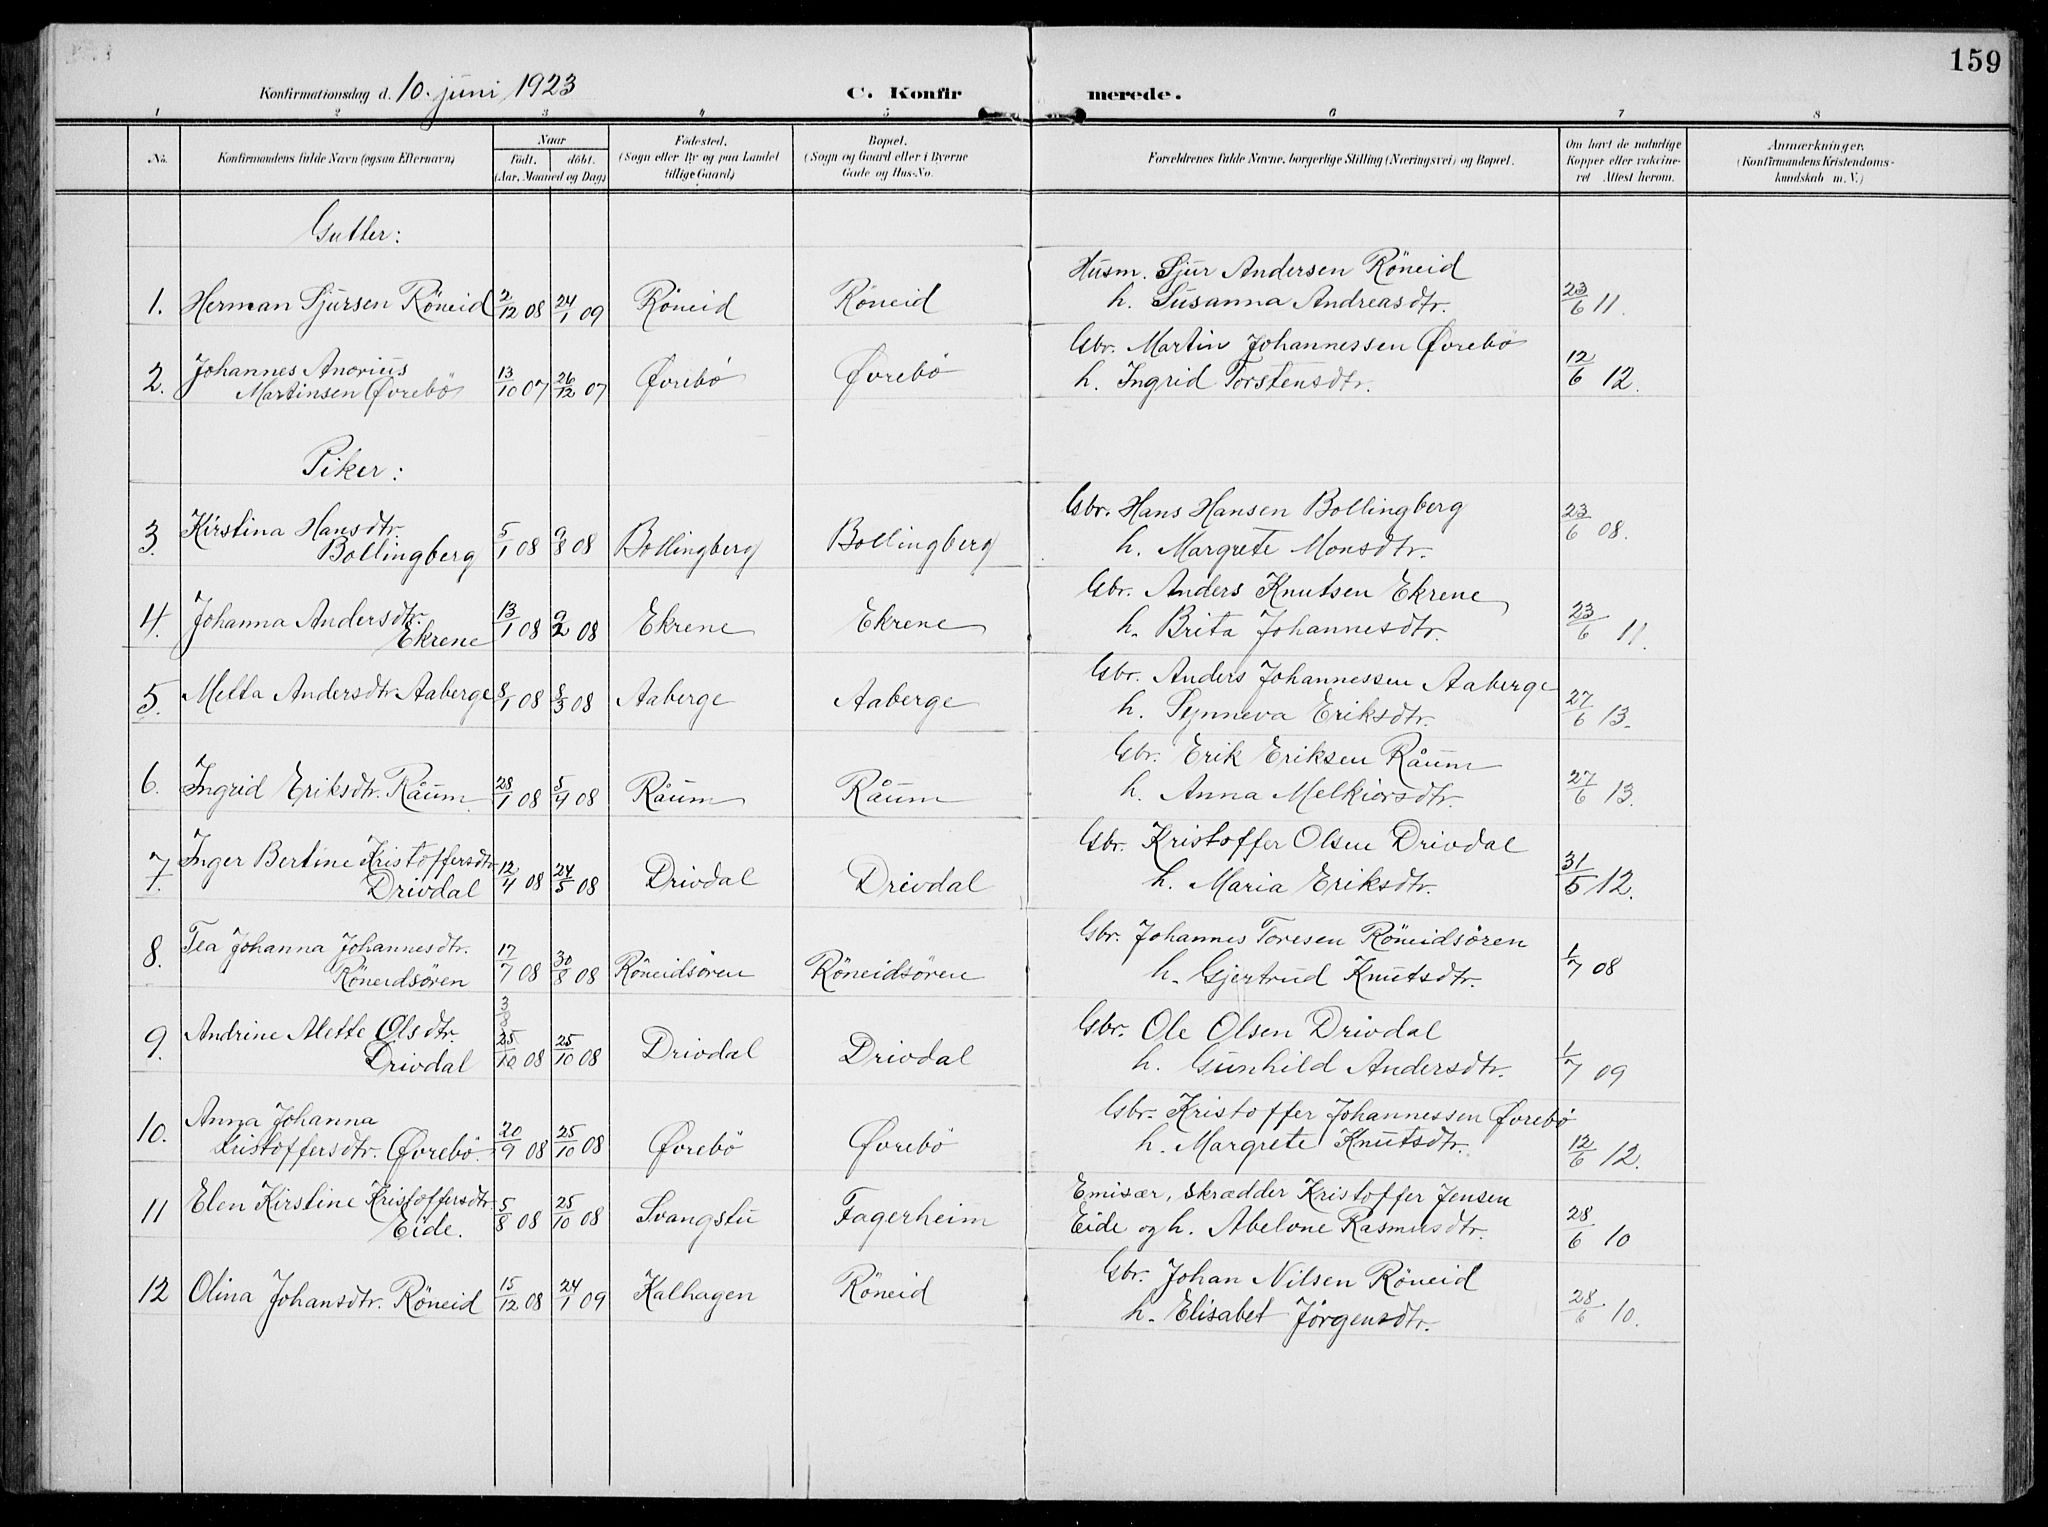 159
Konfirmationsdag d. 10. juni 1923 C. Konfirmerede.
1 2 3 4 5 6 7 8
No. Konfirmandens fulde Navn (ogsaa Efternavn) Naar født. døbt. (Aar, Maaned og Dag) Fødested. (Sogn eller By og paa Landet tillige Gaard) Bopæl. (Sogn og Gaard eller i Byerne Gade og Hus-No. Forældrenes fulde Navne, borgerlige Stilling (Næringsvei) og Bopæl. Om havt de naturlige Kopper eller vakcineret Attest herom. Anmærkninger. (Konfirmandens Kristendomskundskab m. V.)
Gutter:
Husm. Sjur Andersen Röneid
1. Herman Sjursen Röneid 2/12 08 24/1 09 Röneid Röneid h. Susanna Andreasdtr. 23/6 11.
Gbr. Martin Johannessen Øvrebö
2. Johannes Anorius
Martinsen Øvrebö 13/10 07 26/12 07 Øvrebö Øvrebö h. Ingrid Torstensdtr. 12/6 12.
Piker:
3. Kirstina Hansdtr. Gbr. Hans Hansen Bollingberg
Bollingberg 5/1 08 9/8 08 Bollingberg Bollingberg h. Margrete Monsdtr. 23/6 08.
4. Johanna Andersdtr. Gbr. Anders Knutsen Ekrene
Ekrene 13/1 08 9/2 08 Ekrene Ekrene h. Brita Johannesdtr. 23/6 11.
Gbr. Anders Johannessen Aaberge
5. Metta Andersdtr. Aaberge 8/1 08 8/3 08 Aaberge Aaberge h. Synneva Eriksdtr. 27/6 13.
Gbr. Erik Eriksen Råum
6. Ingrid Eriksdtr. Råum 28/1 08 5/4 08 Råum Råum h. Anna Melkiorsdtr. 27/6 13.
7. Inger Bertine Kristoffersdtr. Gbr. Kristoffer Olsen Drivdal
Drivdal 12/4 08 24/5 08 Drivdal Drivdal h. Maria Eriksdtr. 31/5 12.
8. Tea Johanna Johannesdtr. Gbr. Johannes Toresen Röneidsören
Röneidsören 17/7 08 30/8 08 Röneidsören Röneidsören h. Gjertrud Knutsdtr. 1/7 08
3/8
9. Andrine Alette Olsdtr. Gbr. Ole Olsen Drivdal
Drivdal 25/10 08 25/10 08 Drivdal Drivdal h. Gunhild Andersdtr. 1/7 09
10. Anna Johanna Gbr. Kristoffer Johannessen Øvrebö
Kristoffersdtr. Øvrebö. 20/9 08 25/10 08 Øvrebö Øvrebö h. Margrete Knutsdtr. 12/6 12.
11 Elen Kirstine Kristoffersdtr. Emisær, skrædder Kristoffer Jensen
Eide. 5/8 08 25/10 08 Svangstu Fagerheim Eide og h. Abelone Rasmusdtr. 28/6 10
Gbr. Johan Nilsen Röneid
12 Olina Johansdtr. Röneid 15/12 08 24/1 09 Kalhagen Röneid h. Elisabet Jörgensdtr. 28/6 10.